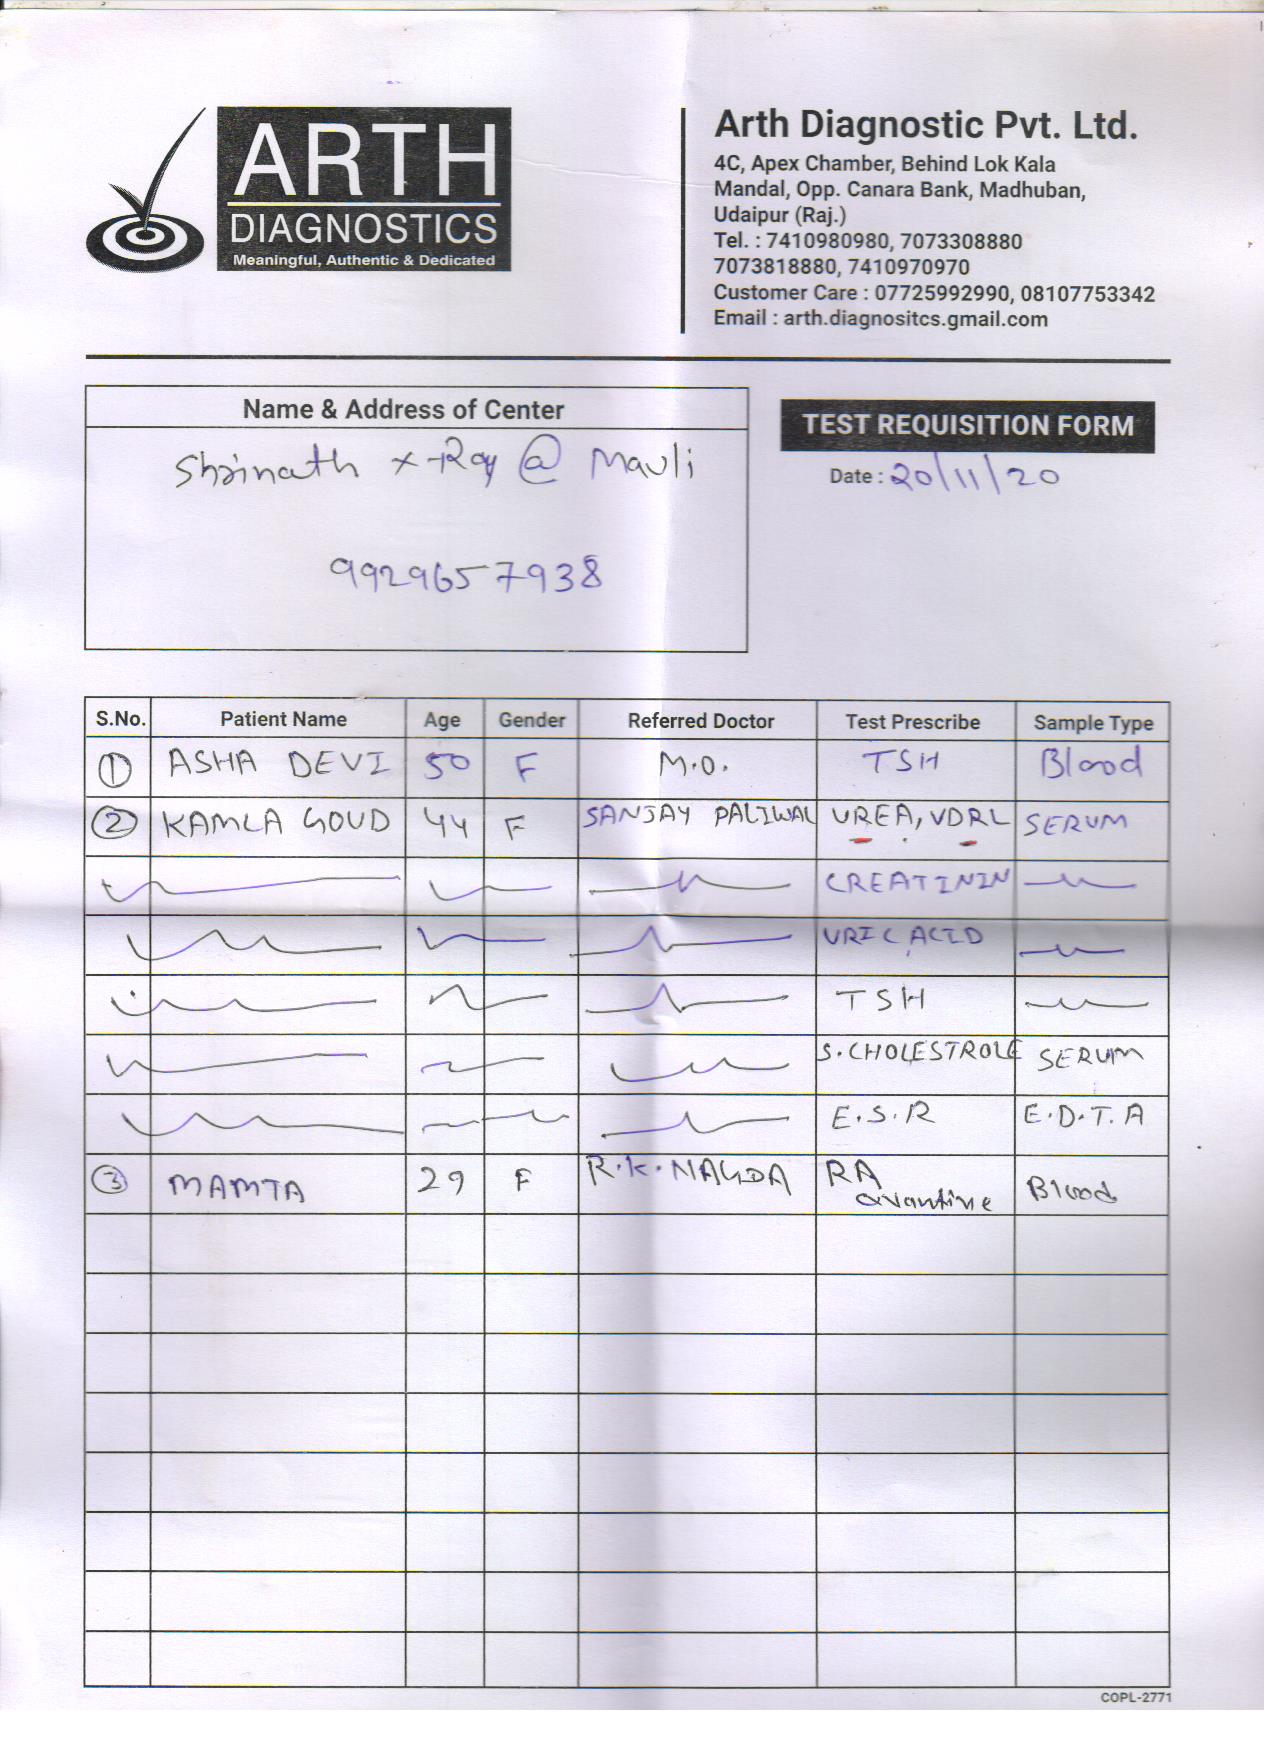 ARTH
DIAGNOSTICS
Meaningful, Authentic & Dedicated
Arth Diagnostic Pvt. Ltd.
4C, Apex Chamber, Behind Lok Kala
Mandal, Opp. Canara Bank, Madhuban,
Udaipur (Raj.)
Tel. : 7410980980, 7073308880
7073818880, 7410970970
Customer Care : 07725992990, 08107753342
Email : arth.diagnositcs.gmail.com
Name & Address of Center
Shrinath X-Ray @ Mavli
9929657938
TEST REQUISITION FORM
Date : 20/11/20
S.No. Patient Name Age Gender Referred Doctor Test Prescribe Sample Type
1 ASHA DEVI 50 F M.O. TSH Blood
2 KAMLA GOUD 44 F SANJAY PALIWAL UREA, VDRL SERUM
CREATININ
URIC ACID
TSH
S. CHOLESTROLE SERUM
E.S.R E.D.T.A
3 MAMTA 29 F R.K. NAGDA RA Blood
COPL-2771